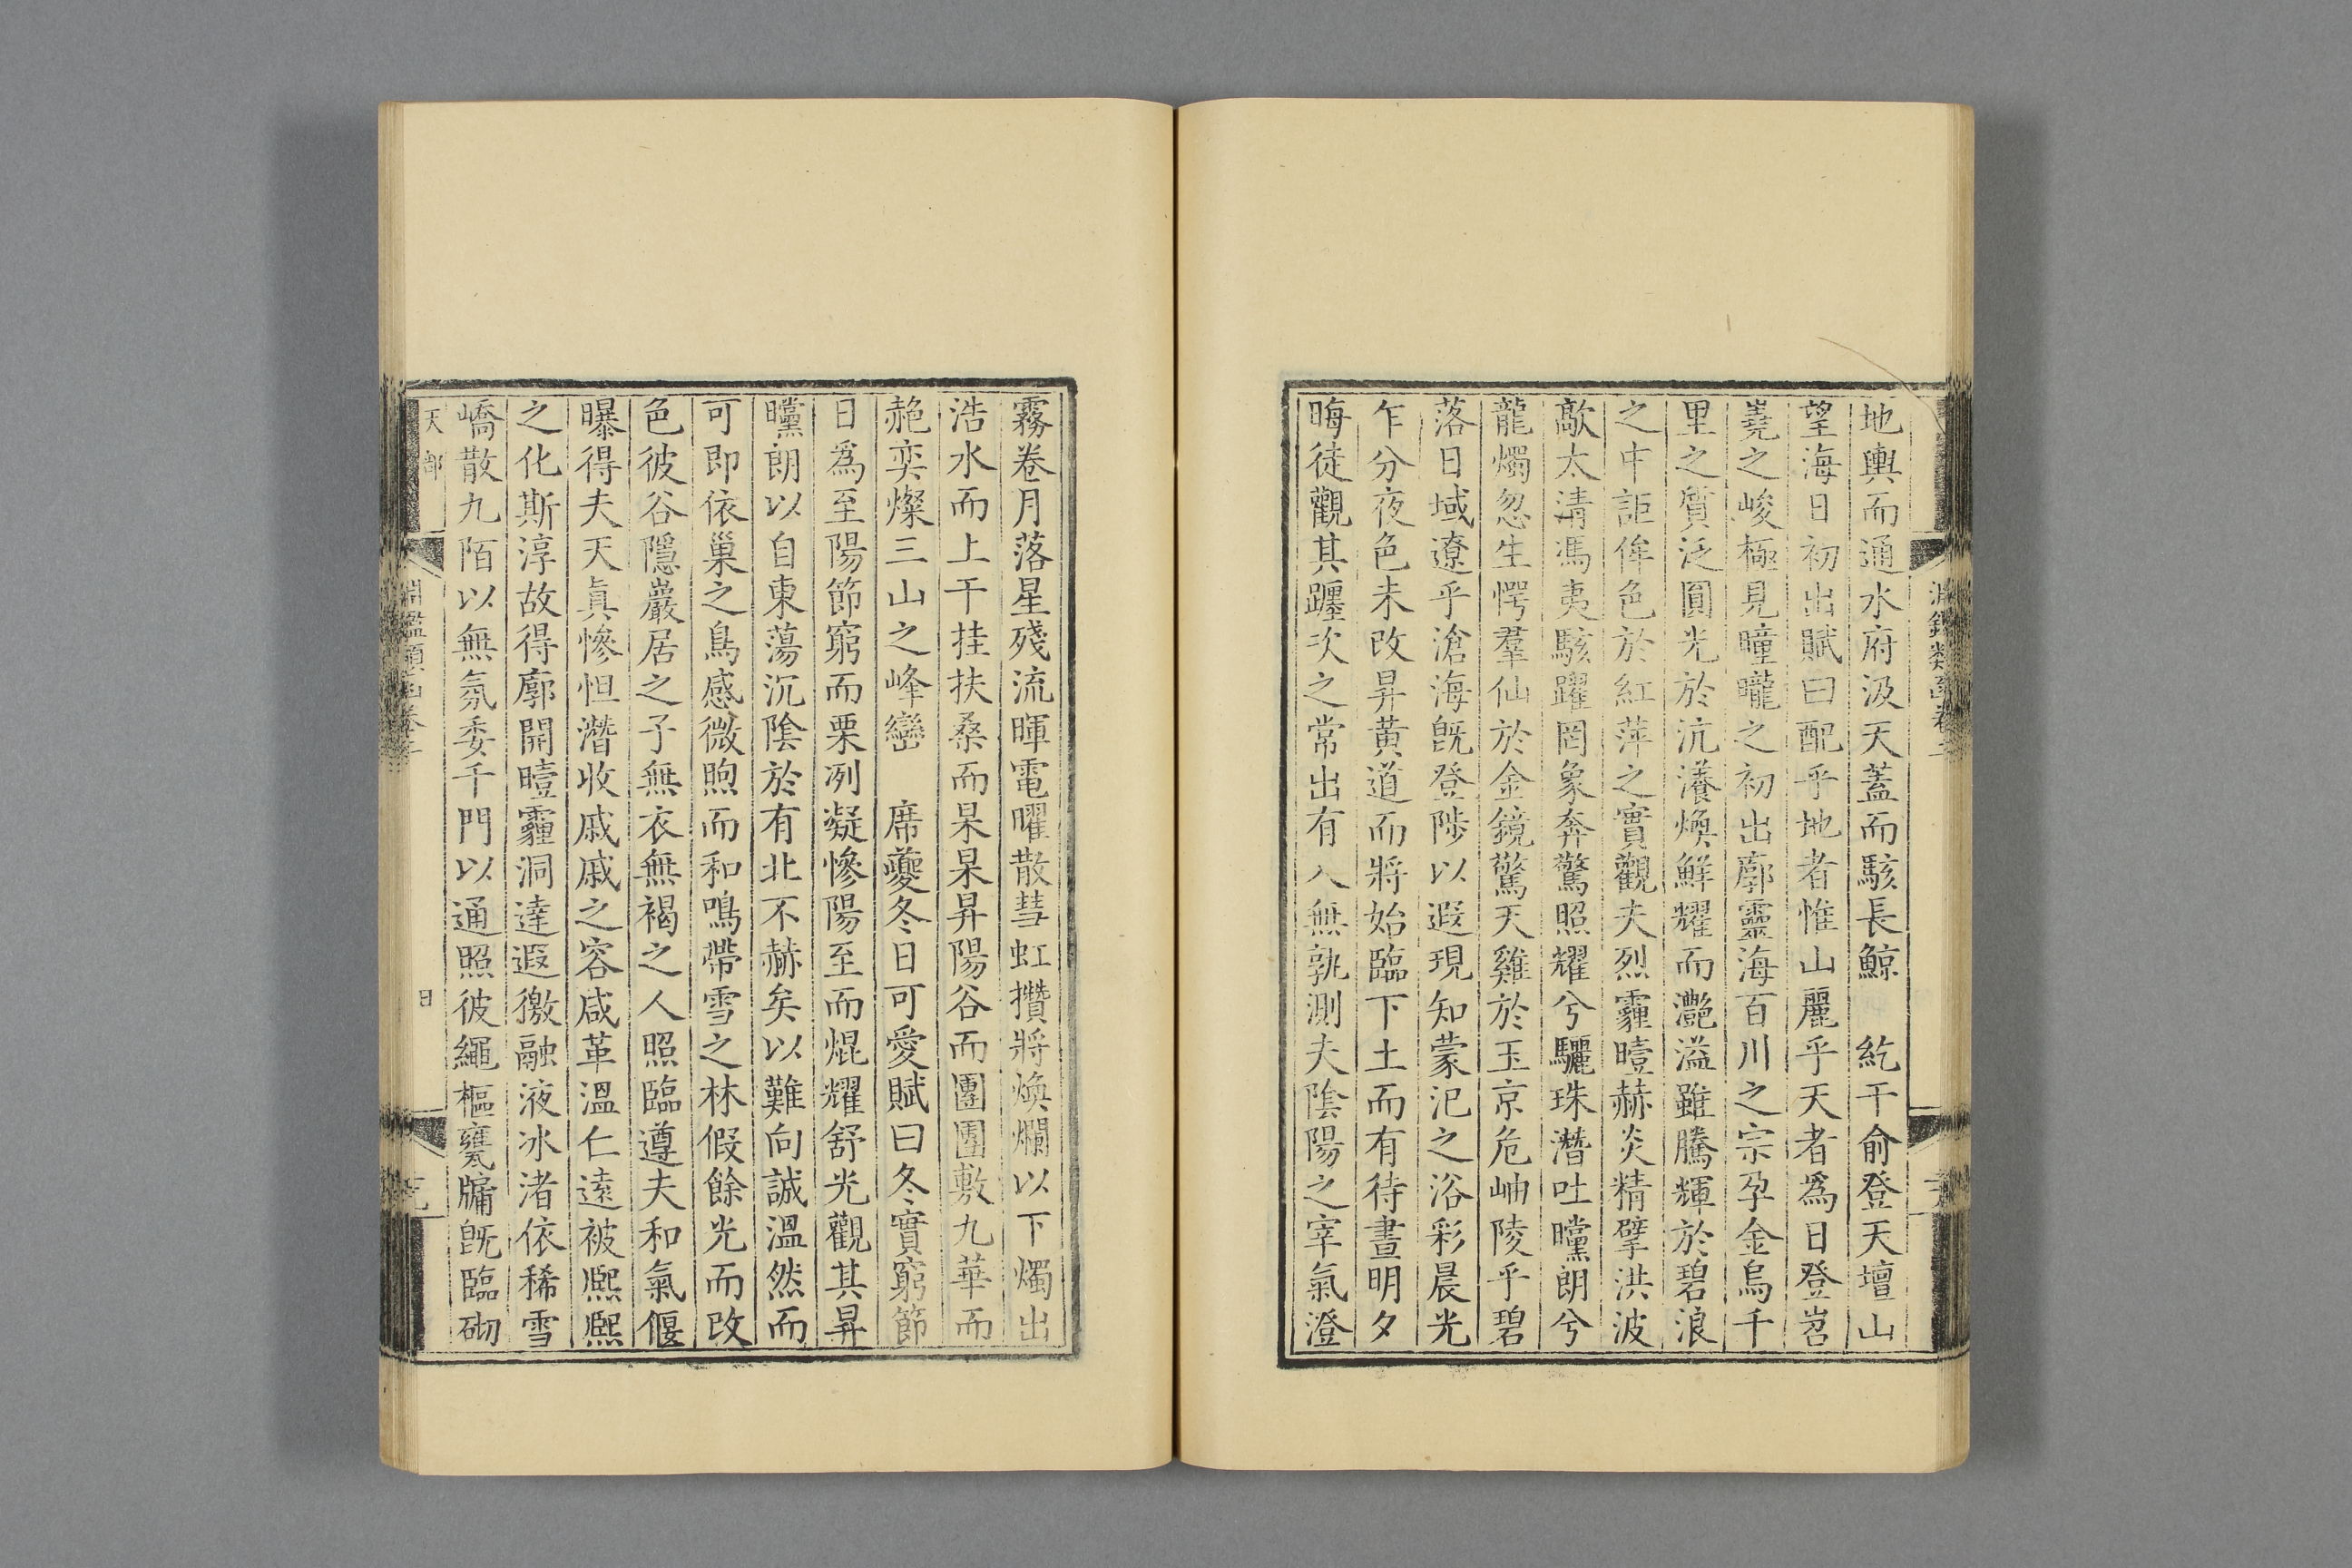 地輿而通水府汲天蓋而駭長鯨　紇干俞登天壇山
望海日初出賦曰配乎地者惟山麗乎天者爲日登岧
嶤之峻極見曈曨之初出廓靈海百川之宗孕金烏千
里之質泛圓光於沆瀁煥鮮耀而灔溢雖騰輝於碧浪
之中詎侔色於紅萍之實觀夫烈霾曀赫炎精擘洪波
歊太清馮夷駭躍罔象奔驚照耀兮驪珠潛吐曭朗兮
龍燭忽生愕羣仙於金鏡驚天雞於玉京危岫陵乎碧
落日域遼乎滄海旣登陟以遐現知蒙汜之浴彩晨光
乍分夜色未改昇黄道而將始臨下土而有待晝明夕
晦徒觀其躔次之常出有入無孰測夫陰陽之宰氣澄
霧卷月落星殘流暉電曜散彗虹攢將煥爛以下燭出
浩水而上干挂扶桑而杲杲昇陽谷而團團敷九華而
赩奕燦三山之峰巒　席夔冬日可愛賦曰冬實窮節
日爲至陽節窮而栗冽凝慘陽至而焜耀舒光觀其昇
曭朗以自東蕩沉陰於有北不赫矣以難向誠溫然而
可即依巢之鳥感微煦而和鳴帶雪之林假餘光而改
色彼谷隱巖居之子無衣無褐之人照臨遵夫和氣偃
曝得夫天眞慘怛潛收戚戚之容咸革溫仁遠被熙熙
之化斯淳故得廓開曀霾洞達遐徼融液冰渚依稀雪
嶠散九陌以無氛委千門以通照彼繩樞甕牖旣臨砌
天部
淵鑑類函卷二
日